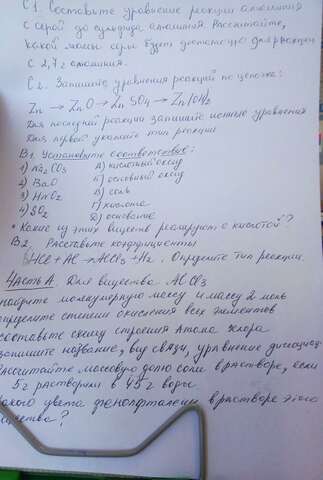 С1. Составьте уравнение реакции алюминия
с серой до сульфида алюминия. Рассчитайте,
какой массы серы будет достаточно для реакции
с 2,7 г алюминия.
С2. Запишите уравнения реакций по цепочке:
Zn → ZnO → ZnSO4 → Zn(OH)2
Для последней реакции запишите ионные уравнения
Для первой укажите тип реакции
В1. Установите соответствие:
1) Na2CO3 А) кислотный оксид
2) BaO Б) основный оксид
3) HNO2 В) соль
4) SO2 Г) кислота
Д) основание
* Какие из этих веществ реагируют с кислотой?
В2. Расставьте коэффициенты
HCl + Al → AlCl3 + H2. Определите тип реакции.
Часть А. Для вещества AlCl3
найдите молекулярную массу и массу 2 моль
определите степени окисления всех элементов
составьте схему строения атома хлора
запишите название, вид связи, уравнение диссоциац
рассчитайте массовую долю соли в растворе, если
5 г растворили в 45 г воды
какого цвета фенолфталеин в растворе этого
щества?